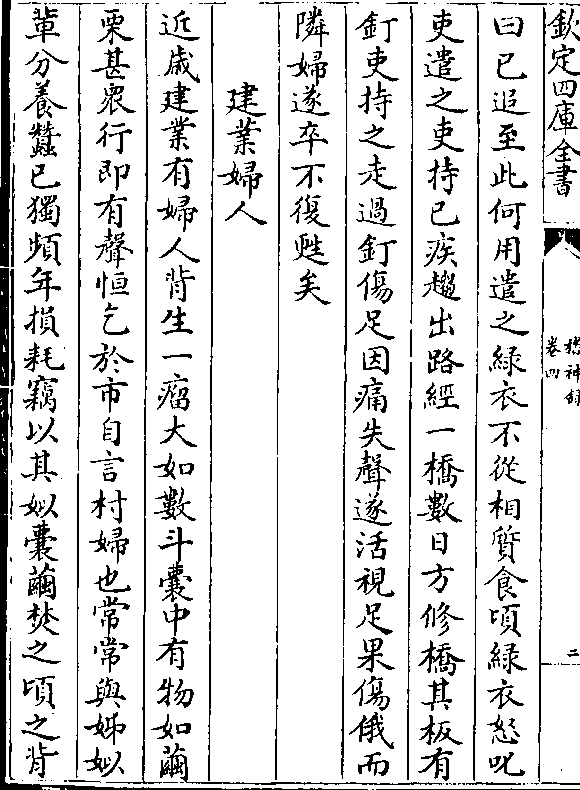 欽定四庫全書
稽神録
卷四
二
曰已追至此何用遣之緑衣不從相質食頃緑衣怒叱
吏遣之吏持已疾趨出路經一橋數日方修橋其板有
釘吏持之走過釘傷足因痛失聲遂活視足果傷俄而
隣婦遂卒不復甦矣
建業婦人
近歲建業有婦人背生一瘤大如數斗囊中有物如繭
栗甚衆行即有聲恒乞於市自言村婦也常常與姊姒
軰分養蠶已獨頻年損耗竊以其姒囊繭焚之頃之背